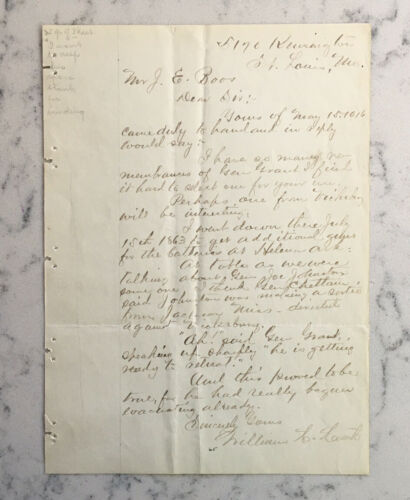 51 Kensington
St. Louis, Mo.
Mr J. E. Boos
Dear Sir:-
Yours of May 15. 1916
came duly to hand and in reply
would say:-
I have so many re-
membrances of Gen Grant I find
it hard to select one for your use.
Perhaps one from Vicksburg
will be interesting.
I went down there July
15th 1863 to get additional guns
for the batteries at Helena Ark.
At table as we were
talking about Gen Joe Johnston
some one, I think Gen
said Johnston was making a
from Jackson Miss- direct
against Vicksburg.
"Ah," said Gen Grant,
speaking up sharply "he is getting
ready to retreat."
And this proved to be
true, for he had really begun
evacuating already.
Sincerely Yours
William L.